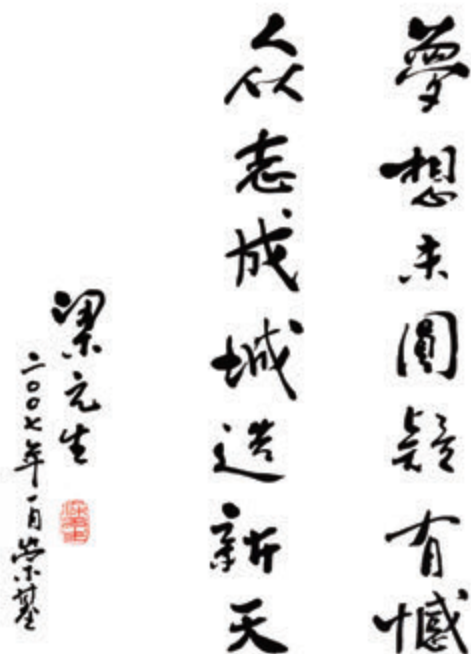 夢想未圓疑有憾
众志成城造新天
梁元生
二〇〇七年一月崇基